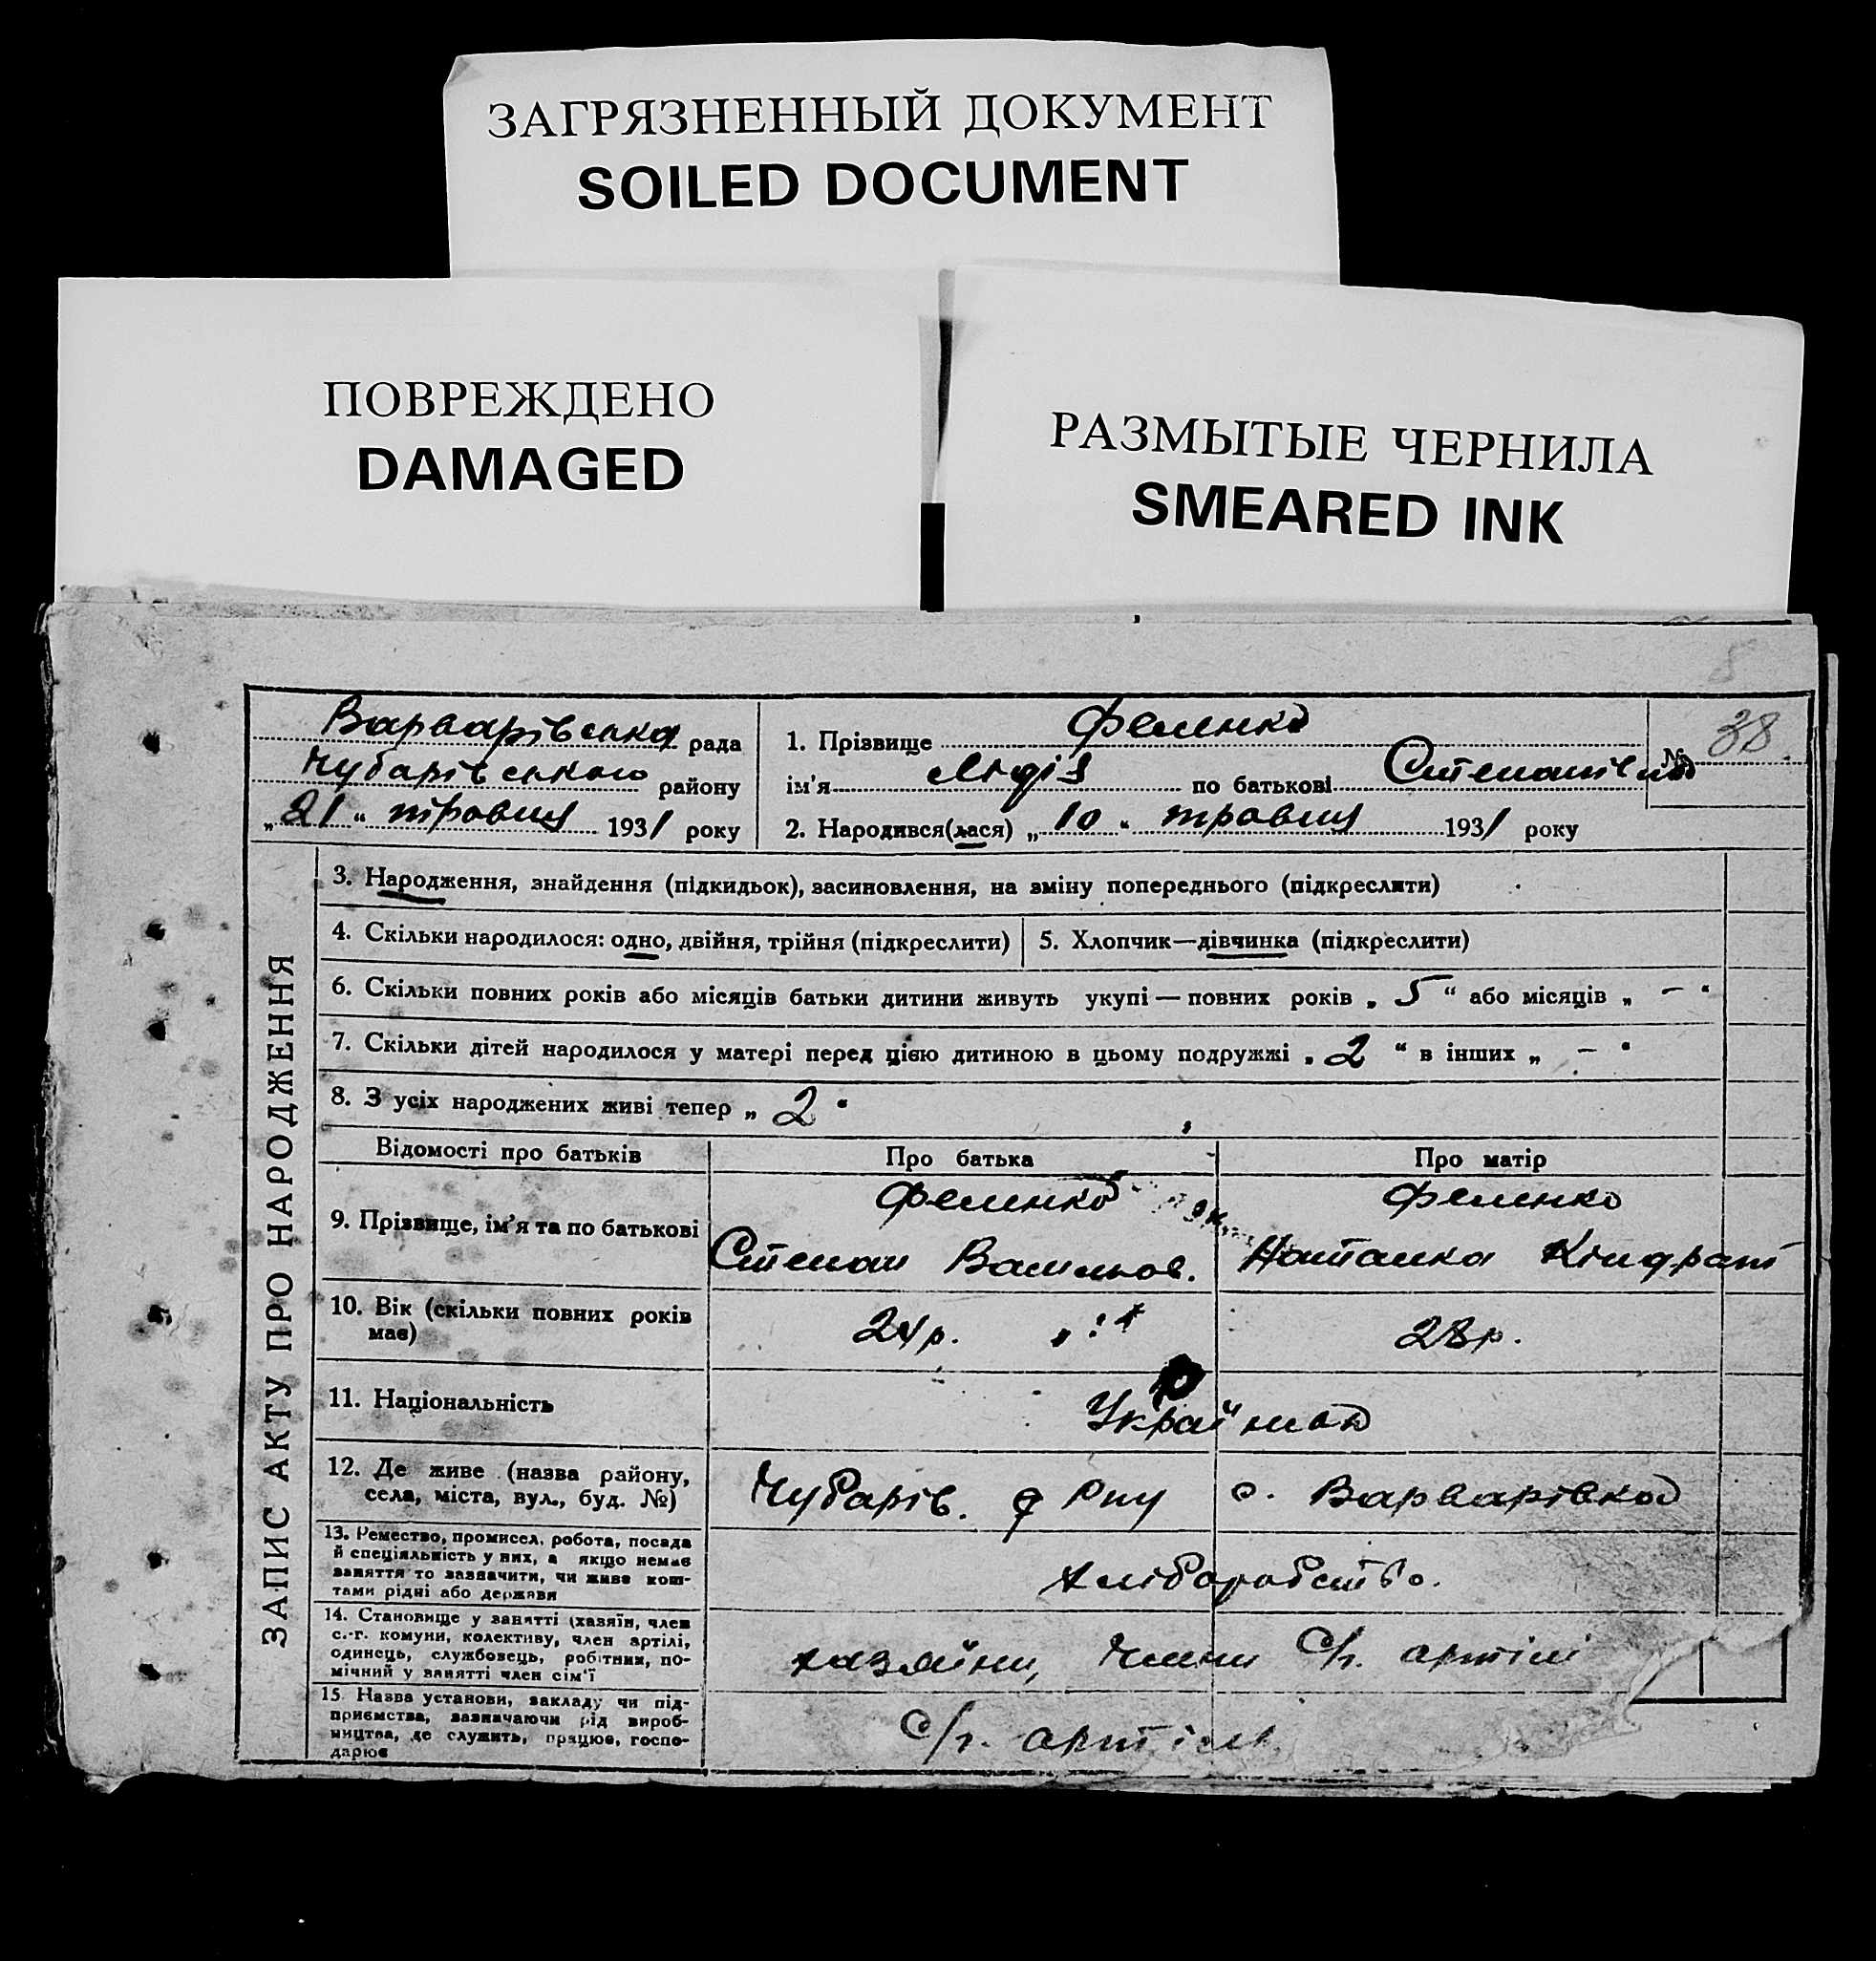 ЗАГРЯЗНЕННЫЙ ДОКУМЕНТ
SOILED DOCUMENT
ПОВРЕЖДЕНО
DAMAGED
РАЗМЫТЫЕ ЧЕРНИЛА
SMEARED INK
Варварівська рада
Чубарівського району
„21“ травня 1931 року
1. Прізвище Феленко
ім'я Лідія по батькові Степанівна
№ 38
2. Народився(лася) „10“ травня 1931 року
ЗАПИС АКТУ ПРО НАРОДЖЕННЯ
3. Народження, знайдення (підкидьок), засиновлення, на зміну попереднього (підкреслити)
4. Скільки народилося: одно, двійня, трійня (підкреслити)
5. Хлопчик—дівчинка (підкреслити)
6. Скільки повних років або місяців батьки дитини живуть укупі — повних років „5“ або місяців „–“
7. Скільки дітей народилося у матері перед цією дитиною в цьому подружжі „2“ в інших „–“
8. З усіх народжених живі тепер „2“
Відомості про батьків
Про батька
Про матір
9. Прізвище, ім'я та по батькові
Феленко
Степан Васильов.
Феленко
Наталка Кіндрат
10. Вік (скільки повних років
має)
24р.
28р.
11. Національність
12. Де живе (назва району,
села, міста, вул., буд. №)
Чубарів. р
с. Варварівка
13. Ремество, промисел, робота, посада
й спеціяльність у них, а якщо немає
заняття то зазначити, чи живе кош-
тами рідні або держави
хліборобство.
14. Становище у занятті (хазяїн, член
с.-г. комуни, колективу, член артілі,
одинець, службовець, робітник, по-
мічний у занятті член сім'ї
хазяїни, члени С/г. артілі
15. Назва установи, закладу чи під-
приємства, зазначаючи рід вироб-
ництва, де служить, працює, госпо-
дарює
С/г. артіль